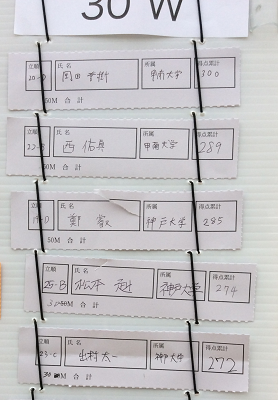 30 W
立順 氏名 所属 得点累計
20-D 岡田 甲南大学 300
50M 合計
立順 氏名 所属 得点累計
22-B 西 佑真 甲南大学 289
50M 合計
立順 氏名 所属 得点累計
鄭 神戸大学 285
50M 合計
立順 氏名 所属 得点累計
25-B 松本 神戸大学 274
50M 合計
立順 氏名 所属 得点累計
23-C 出村 太一 神戸大学 272
30M 合計